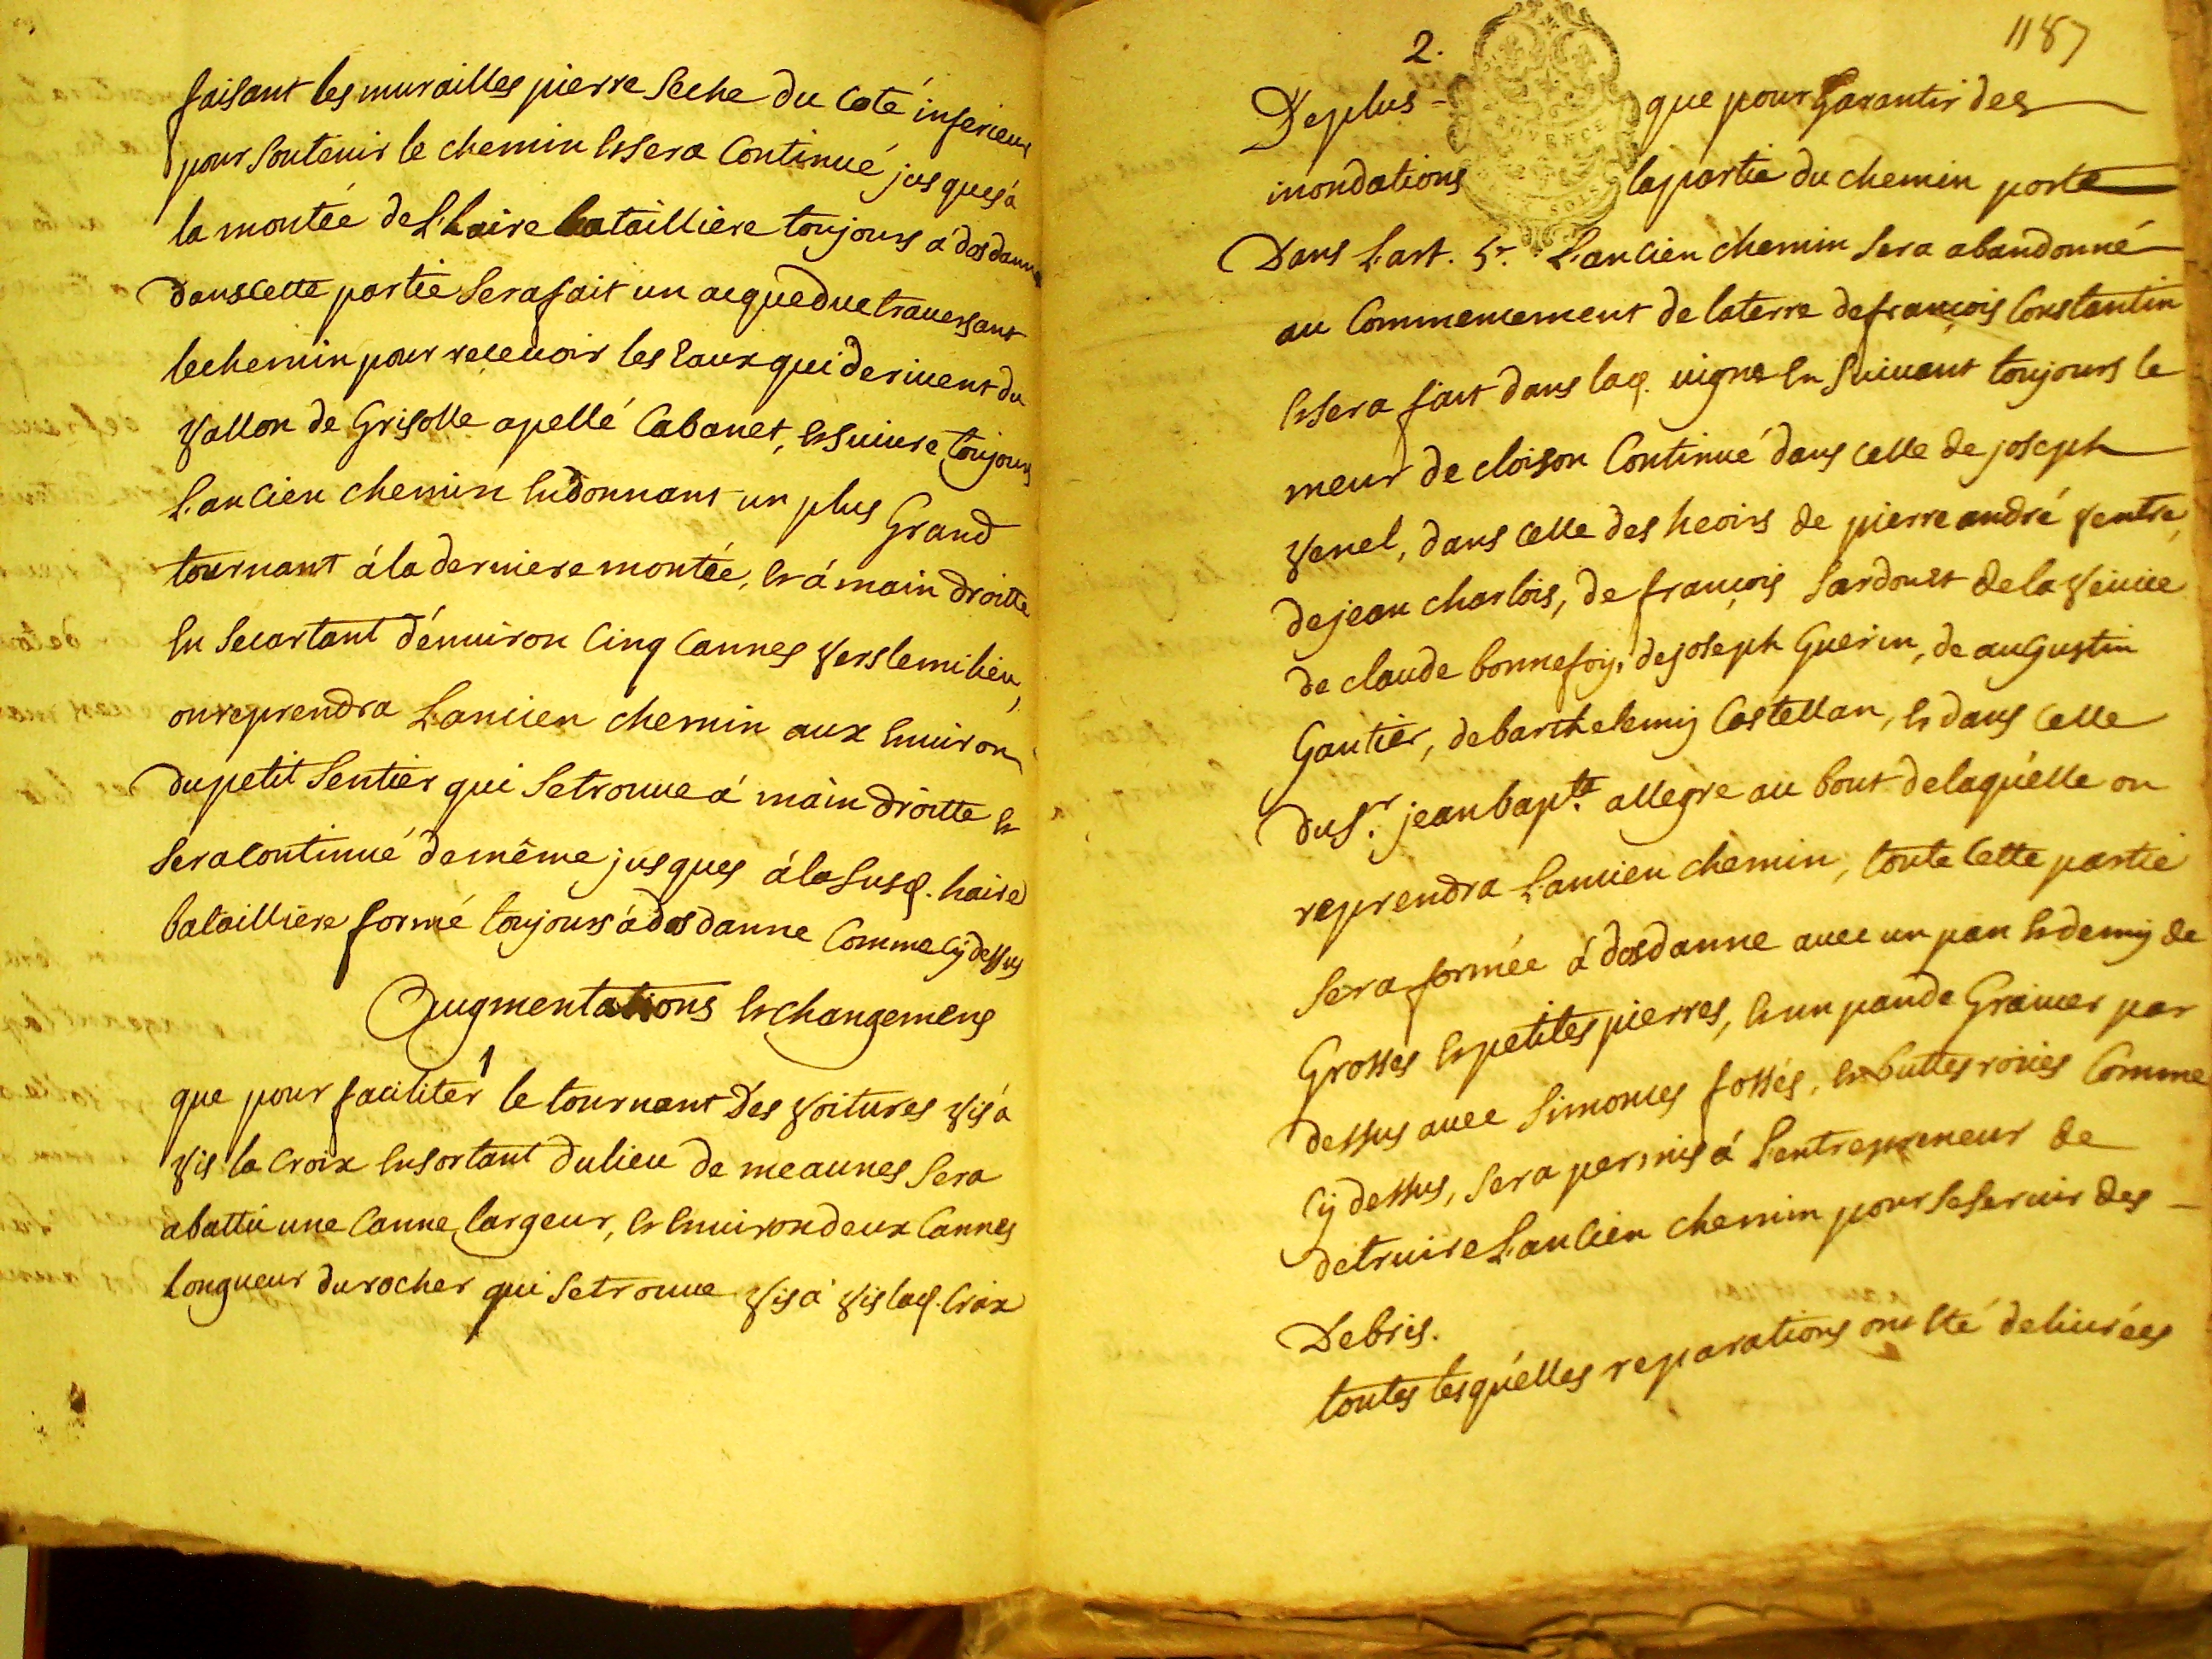 faisant les murailles pierre seche du coté inferieur
pour soutenir le chemin et sera continué jusques à
la montée de L'haire bataillière toujours a dos danne
dans cette partie sera fait un acqueduc traversant
le chemin pour recevoir les eaux qui derivent du
vallon de Grisolle apellé Cabanet, et suivre toujours
L'ancien chemin en donnant un plus Grand
tournant á la derniere montée, et á main droitte
en secartant d'environ cinq cannes vers le milieu,
on reprendra L'ancien chemin aux environ
du petit sentier qui se trouve á main droitte et
sera continué de même jusques á la susd. haire
batailliere formé toujours á dos danne comme cy dessus
Augmentations et changemens
1
que pour faciliter le tournant des voitures vis á
vis la croix en sortant du lieu de meaunes sera
abattu une canne largeur, et environ deux cannes
longueur du rocher qui se trouve vis á vis lad. croix
1187
2.
De plus - que pour garantir des
inondations la partie du chemin porté
Dans L'art. 5e. L'ancien chemin sera abandonné
au commencement de la terre de françois Constantin
et sera fait dans lad. vigne en suivant toujours le
meur de cloison continué dans celle de joseph
venel, dans celle des heoirs de pierre andré ventre,
de jean charlois, de françois Sardouet de la veuve
de claude bonnefoy, de joseph Guerin, de augustin
Gautier, de barthelemy Castellan, et dans celle
du sr. jean bapte. allegre au bout de laquelle on
reprendra L'ancien chemin, toute cette partie
sera formée á dos danne avec un pan et demy de
Grosses et petites pierres, et un pan de Gravier par
dessus avec Simouces fossés, et buttes roües comme
cy dessus, sera permis á L'entrepreneur de
detruire L'ancien chemin pour se servir des
Debris.
toutes lesquelles reparations ont eté delivrées